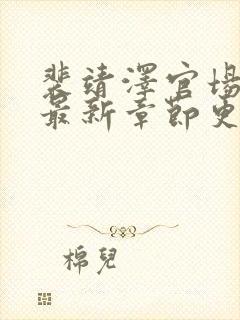 裴靖澤官場
最新章節更
棉兒